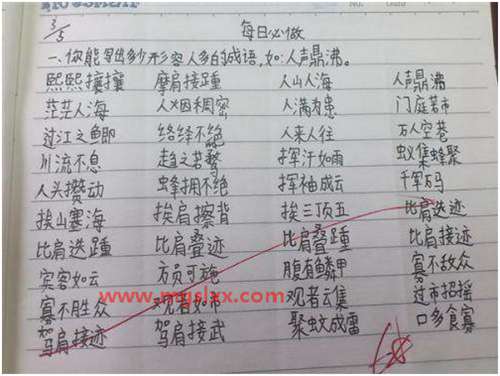 3/5 每日必做
一、你能写出多少形容人多的成语,如:人声鼎沸。
熙熙攘攘 摩肩接踵 人山人海 人声鼎沸
茫茫人海 人烟稠密 人满为患 门庭若市
过江之鲫 络绎不绝 人来人往 万人空巷
川流不息 趋之若鹜 挥汗如雨 蚁集蜂聚
人头攒动 蜂拥不绝 挥袖成云 千军万马
挨山塞海 挨肩擦背 挨三顶五 比肩迭迹
比肩迭踵 比肩叠迹 比肩叠踵 比肩接迹
宾客如云 方员可施 腹背鳞甲 寡不敌众
寡不胜众 观者如市 观者云集 过市招摇
驾肩接迹 驾肩接武 聚蚊成雷 口多食寡
www.mgslxx.com